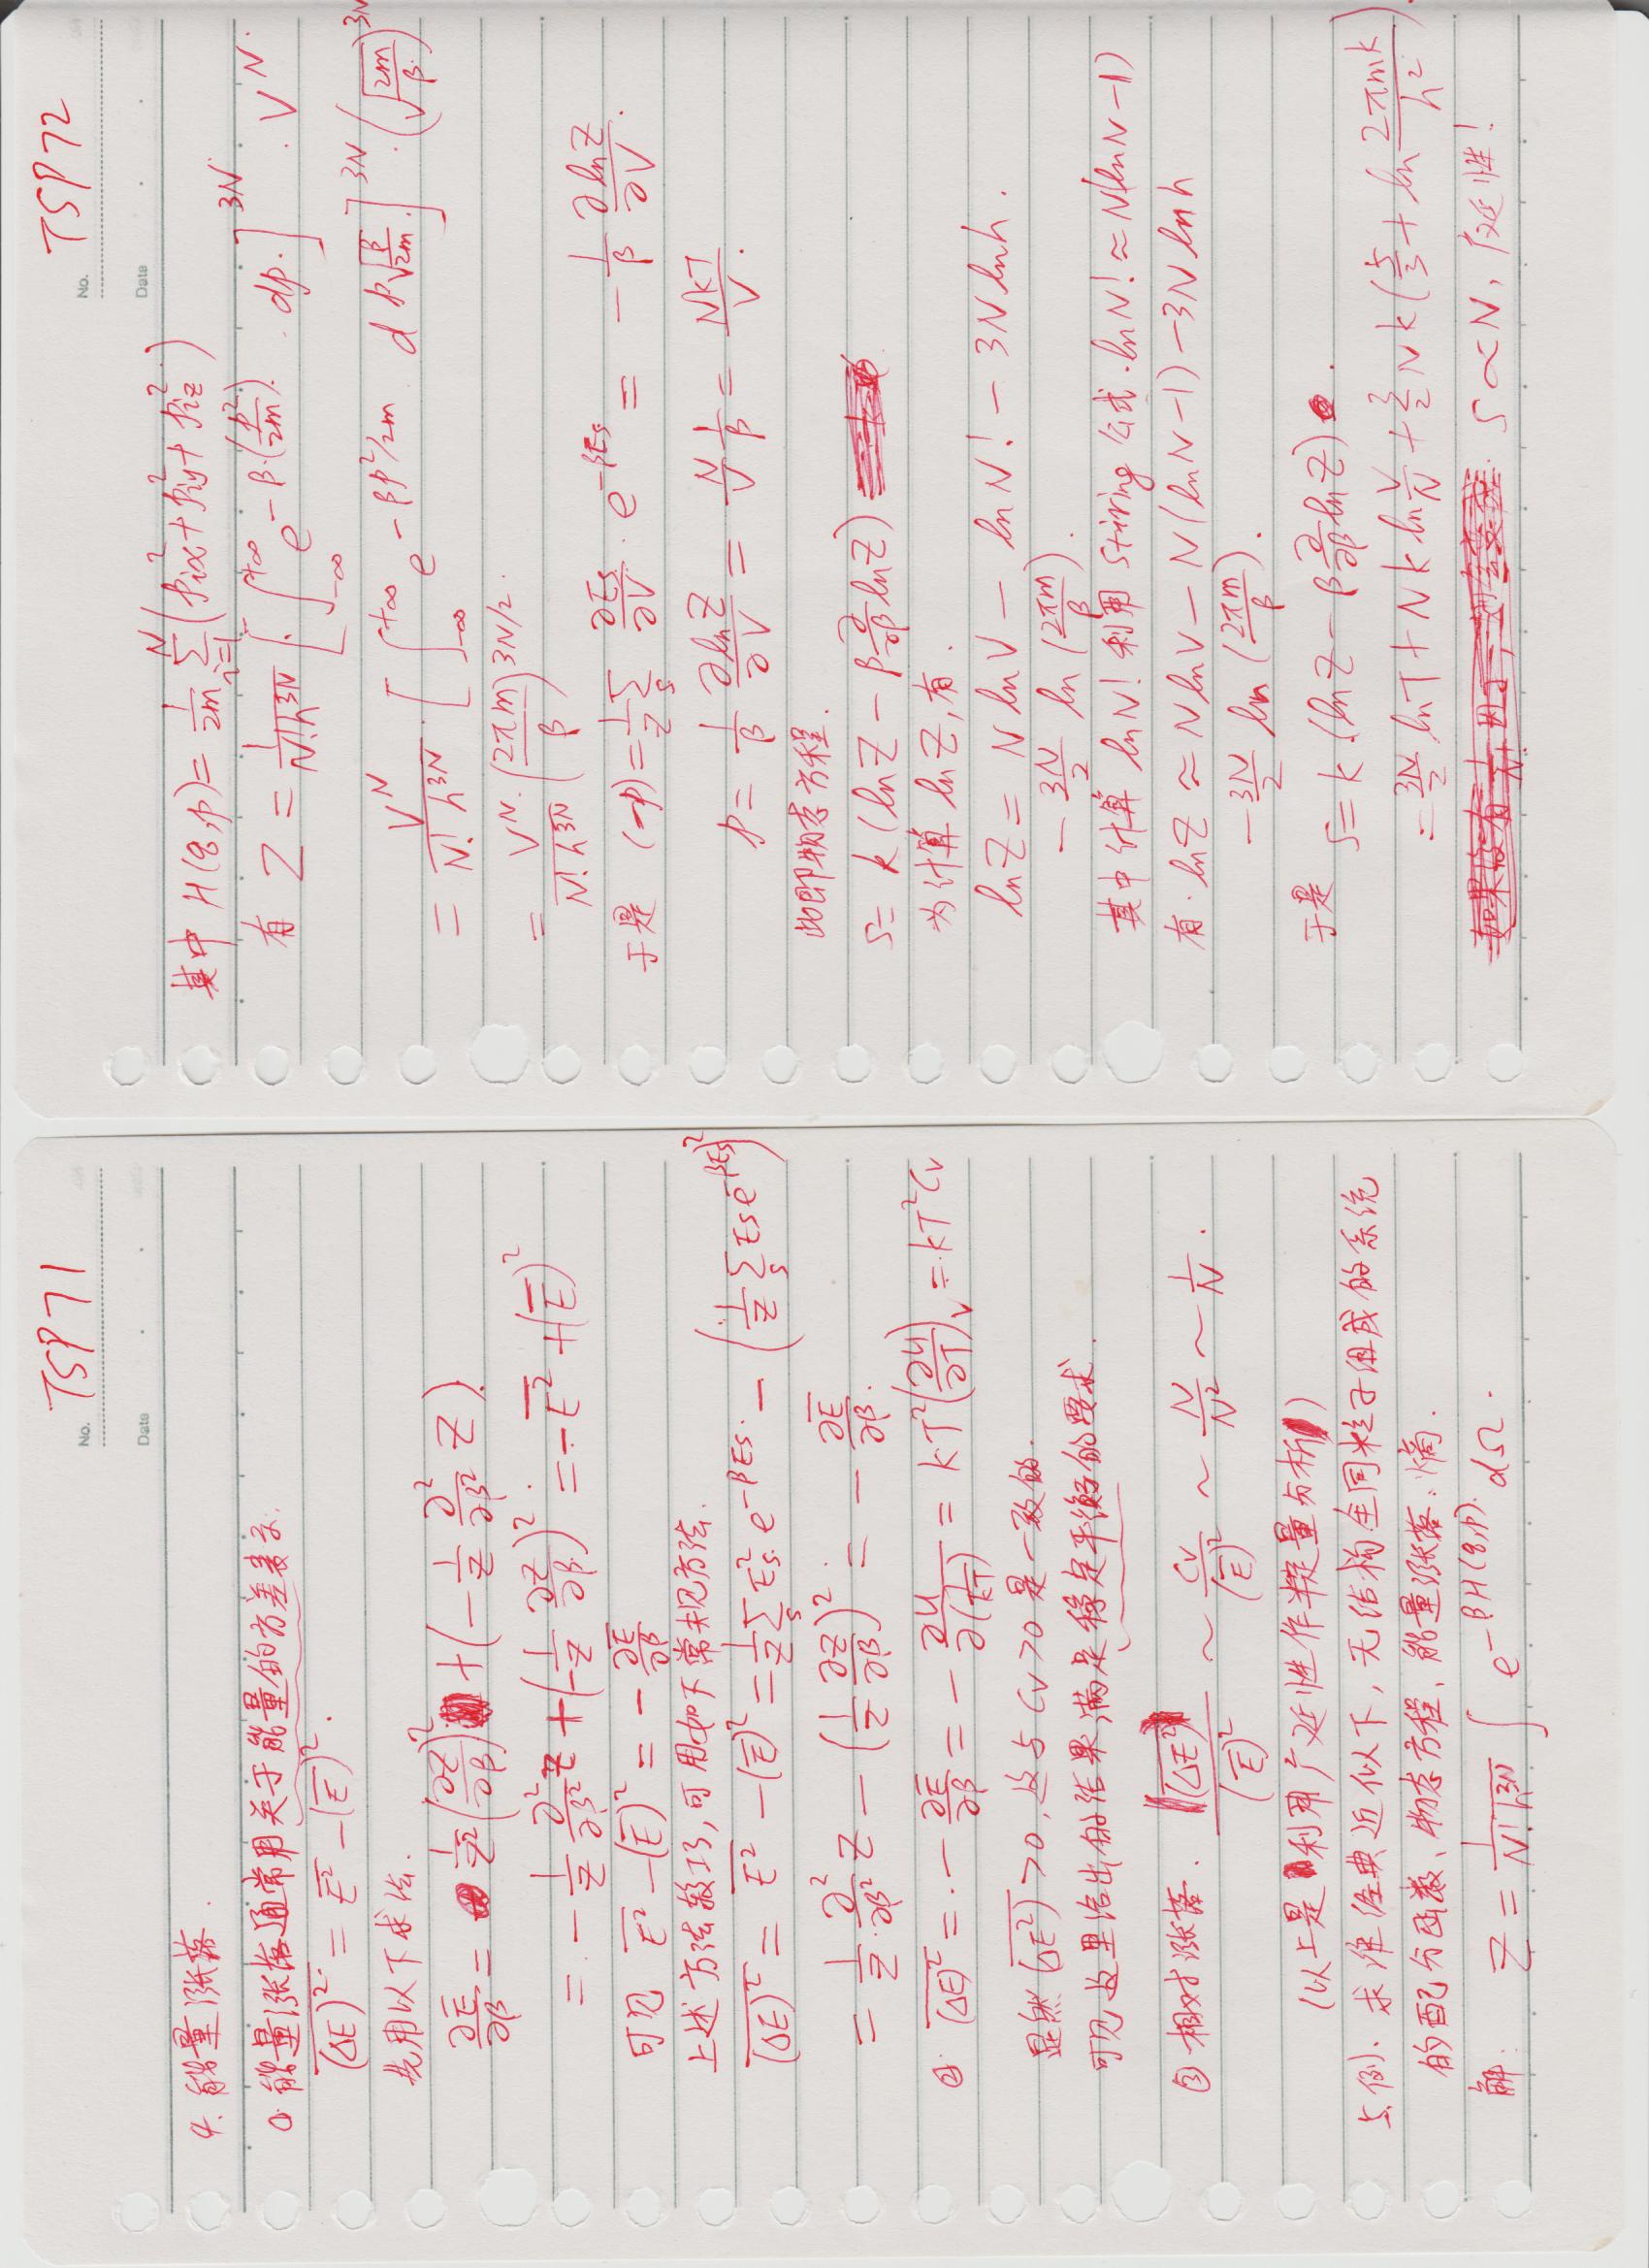 No. TSP71
Date
4. 能量涨落.
① 能量涨落通常用关于能量的方差表示.
\overline{(ΔE)^2} = \overline{E^2} - (\overline{E})^2.
先用以下求法.
∂\overline{E}/∂β = 1/Z^2 (∂Z/∂β)^2 + (-1/Z ∂^2/∂β^2 Z).
= -1/Z ∂^2/∂β^2 Z + (-1/Z ∂Z/∂β)^2 = -\overline{E^2} + (\overline{E})^2
可见 \overline{E^2} - (\overline{E})^2 = -∂\overline{E}/∂β
上述方法较巧, 可用如下常规方法.
\overline{(ΔE)^2} = \overline{E^2} - (\overline{E})^2 = 1/Z ∑_s E_s^2 e^{-βE_s} - (1/Z ∑_s E_s e^{-βE_s})^2
= 1/Z ∂^2/∂β^2 Z - (1/Z ∂Z/∂β)^2 = -∂\overline{E}/∂β.
② \overline{(ΔE)^2} = -∂\overline{E}/∂β = -∂U/∂(1/kT) = kT^2 (∂U/∂T)_V = kT^2 C_V
显然 \overline{(ΔE^2)} > 0, 这与 C_V > 0 是一致的.
可见这里给出的结果满足稳定平衡的要求.
③ 相对涨落. \overline{(ΔE^2)}/(\overline{E})^2 ~ C_V/(\overline{E})^2 ~ N/N^2 ~ 1/N.
(以上是利用广延性作半定量分析)
5. 例. 求准经典近似下, 无结构全同粒子组成的系统
的配分函数、物态方程、能量涨落、熵.
解: Z = 1/(N! h^{3N}) ∫ e^{-βH(q,p)} dΩ.
No. TSP72
Date
其中 H(q,p) = 1/2m ∑_{i=1}^{N} (p_{ix}^2 + p_{iy}^2 + p_{iz}^2)
有 Z = 1/(N! h^{3N}) [∫_{-∞}^{+∞} e^{-β(p^2/2m)} dp]^{3N} · V^N.
= V^N/(N! h^{3N}) · [∫_{-∞}^{+∞} e^{-βp^2/2m} d p√(β/2m)]^{3N} · (√(2m/β))^{3N}
= V^N/(N! h^{3N}) (2πm/β)^{3N/2}.
于是 (-p) = 1/Z ∑_s ∂E_s/∂V · e^{-βE_s} = -1/β ∂lnZ/∂V.
p = 1/β ∂lnZ/∂V = N/V 1/β = NkT/V.
此即物态方程.
S = k (lnZ - β ∂/∂β lnZ)
为计算 lnZ, 有.
lnZ = N lnV - lnN! - 3N lnh.
- 3N/2 ln (2πm/β).
其中计算 lnN! 利用 Stiring 公式. lnN! ≈ N(lnN-1)
有. lnZ ≈ N lnV - N(lnN-1) - 3N lnh
- 3N/2 ln (2πm/β).
于是 S = k (lnZ - β ∂/∂β lnZ).
= 3N/2 lnT + Nk ln V/N + 3/2 Nk (5/3 + ln 2πmk/h^2).
如果没有 1/N! 因子, 则会变成. S ∝ N, 广延性!